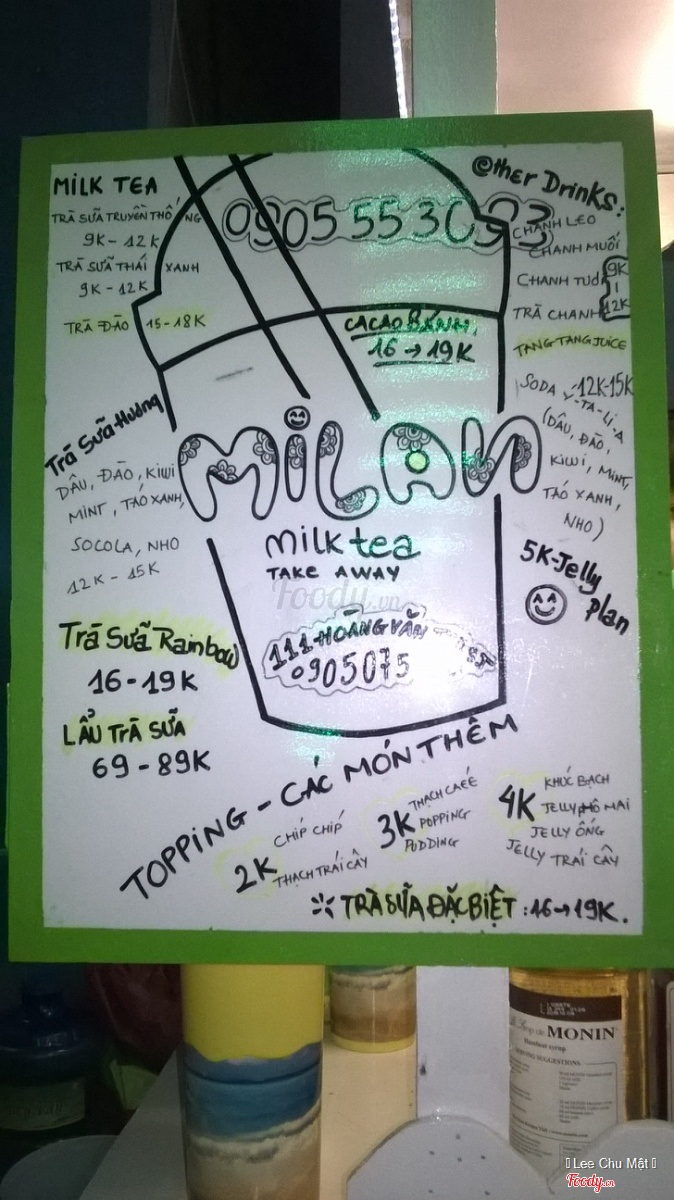 MILK TEA
TRÀ SỮA TRUYỀN THỐNG
9K - 12K
TRÀ SỮA THÁI XANH
9K - 12K
TRÀ ĐÀO 15-18K
Trà Sữa Hương
DÂU, ĐÀO, KIWI
MINT, TÁO XANH,
SOCOLA, NHO
12K - 15K
Trà Sữa Rainbow
16-19K
LẨU TRÀ SỮA
69 - 89K
0905 55 30 93
CACAO BÁNH:
16 → 19K
MiLAN
milk tea
TAKE AWAY
Foody.vn
111 HOÀNG VĂN
0905075
@ther Drinks:
CHANH LEO
CHANH MUỐI
CHANH TƯƠI
TRÀ CHANH
9K - 12K
TANG TANG JUICE
SODA Ý 12K-15K
-TA-LI-A
(DÂU, ĐÀO,
KIWI, MINT,
TÁO XANH,
NHO)
5K-Jelly
plan
TOPPING - CÁC MÓN THÊM
2K
CHÍP CHÍP
THẠCH TRÁI CÂY
3K
THẠCH CAFÉ
POPPING
PUDDING
4K
KHÚC BẠCH
JELLY PHÔ MAI
JELLY ỐNG
JELLY TRÁI CÂY
TRÀ SỮA ĐẶC BIỆT : 16 → 19K.
Le Sirop de MONIN
Hazelnut syrup
SERVING SUGGESTIONS
Lee Chu Mật
Foody.vn